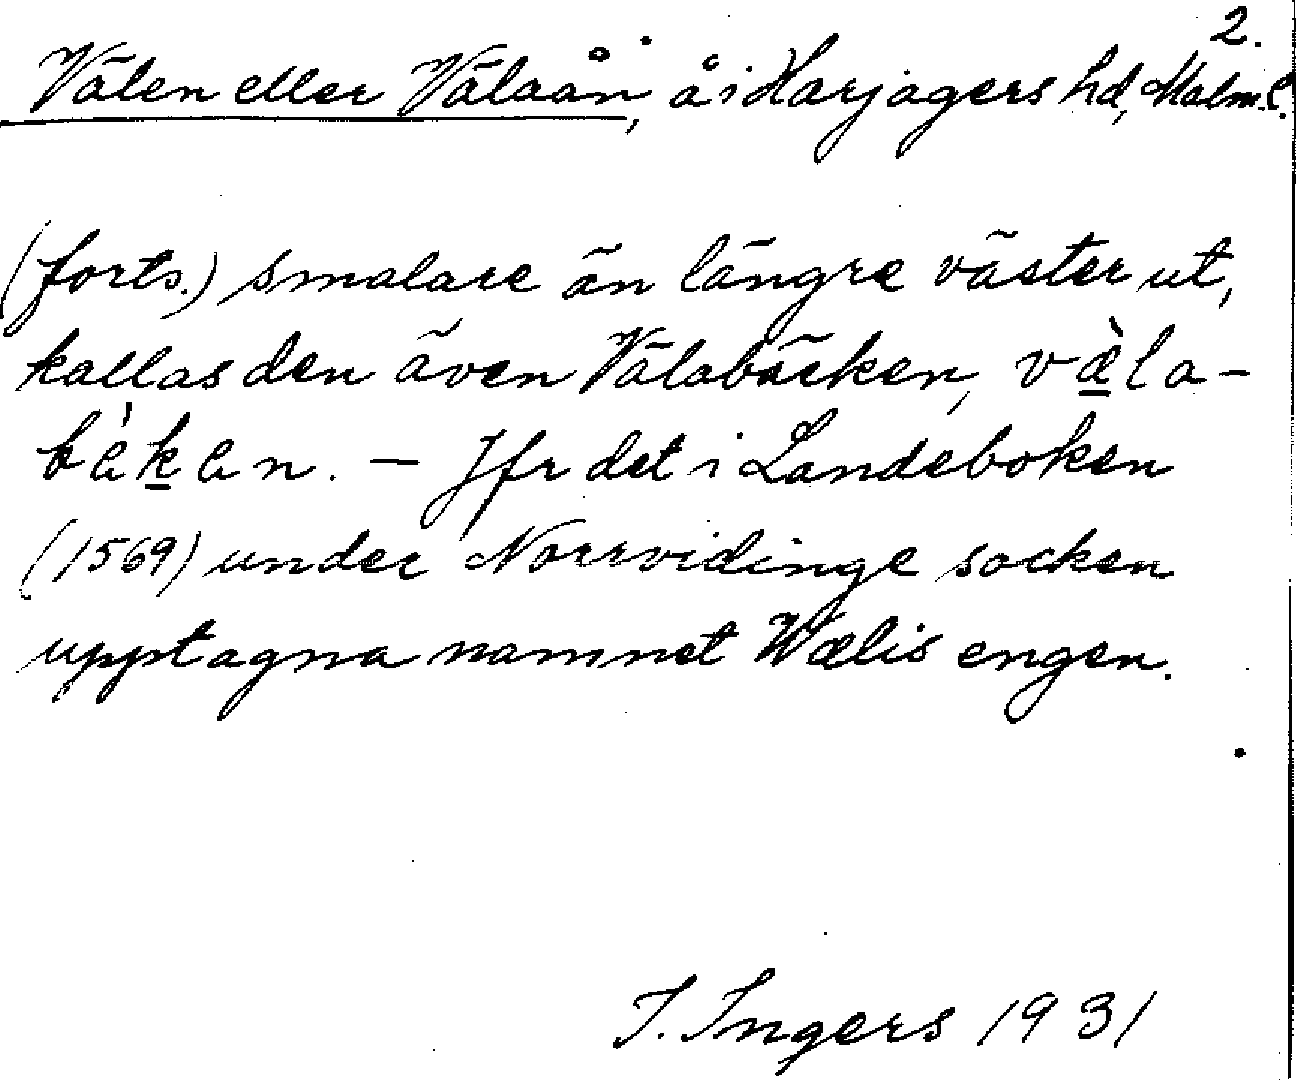 2.
Välen eller Välaån, å i Harjagers hd, Malm.l.
(forts.) smalare än längre väster ut,
kallas den även Välabäcken, væ̀la-
bækən. – Jfr det i Landeboken
(1569) under Norrvidinge socken
upptagna namnet Wælis engen.
I. Ingers 1931